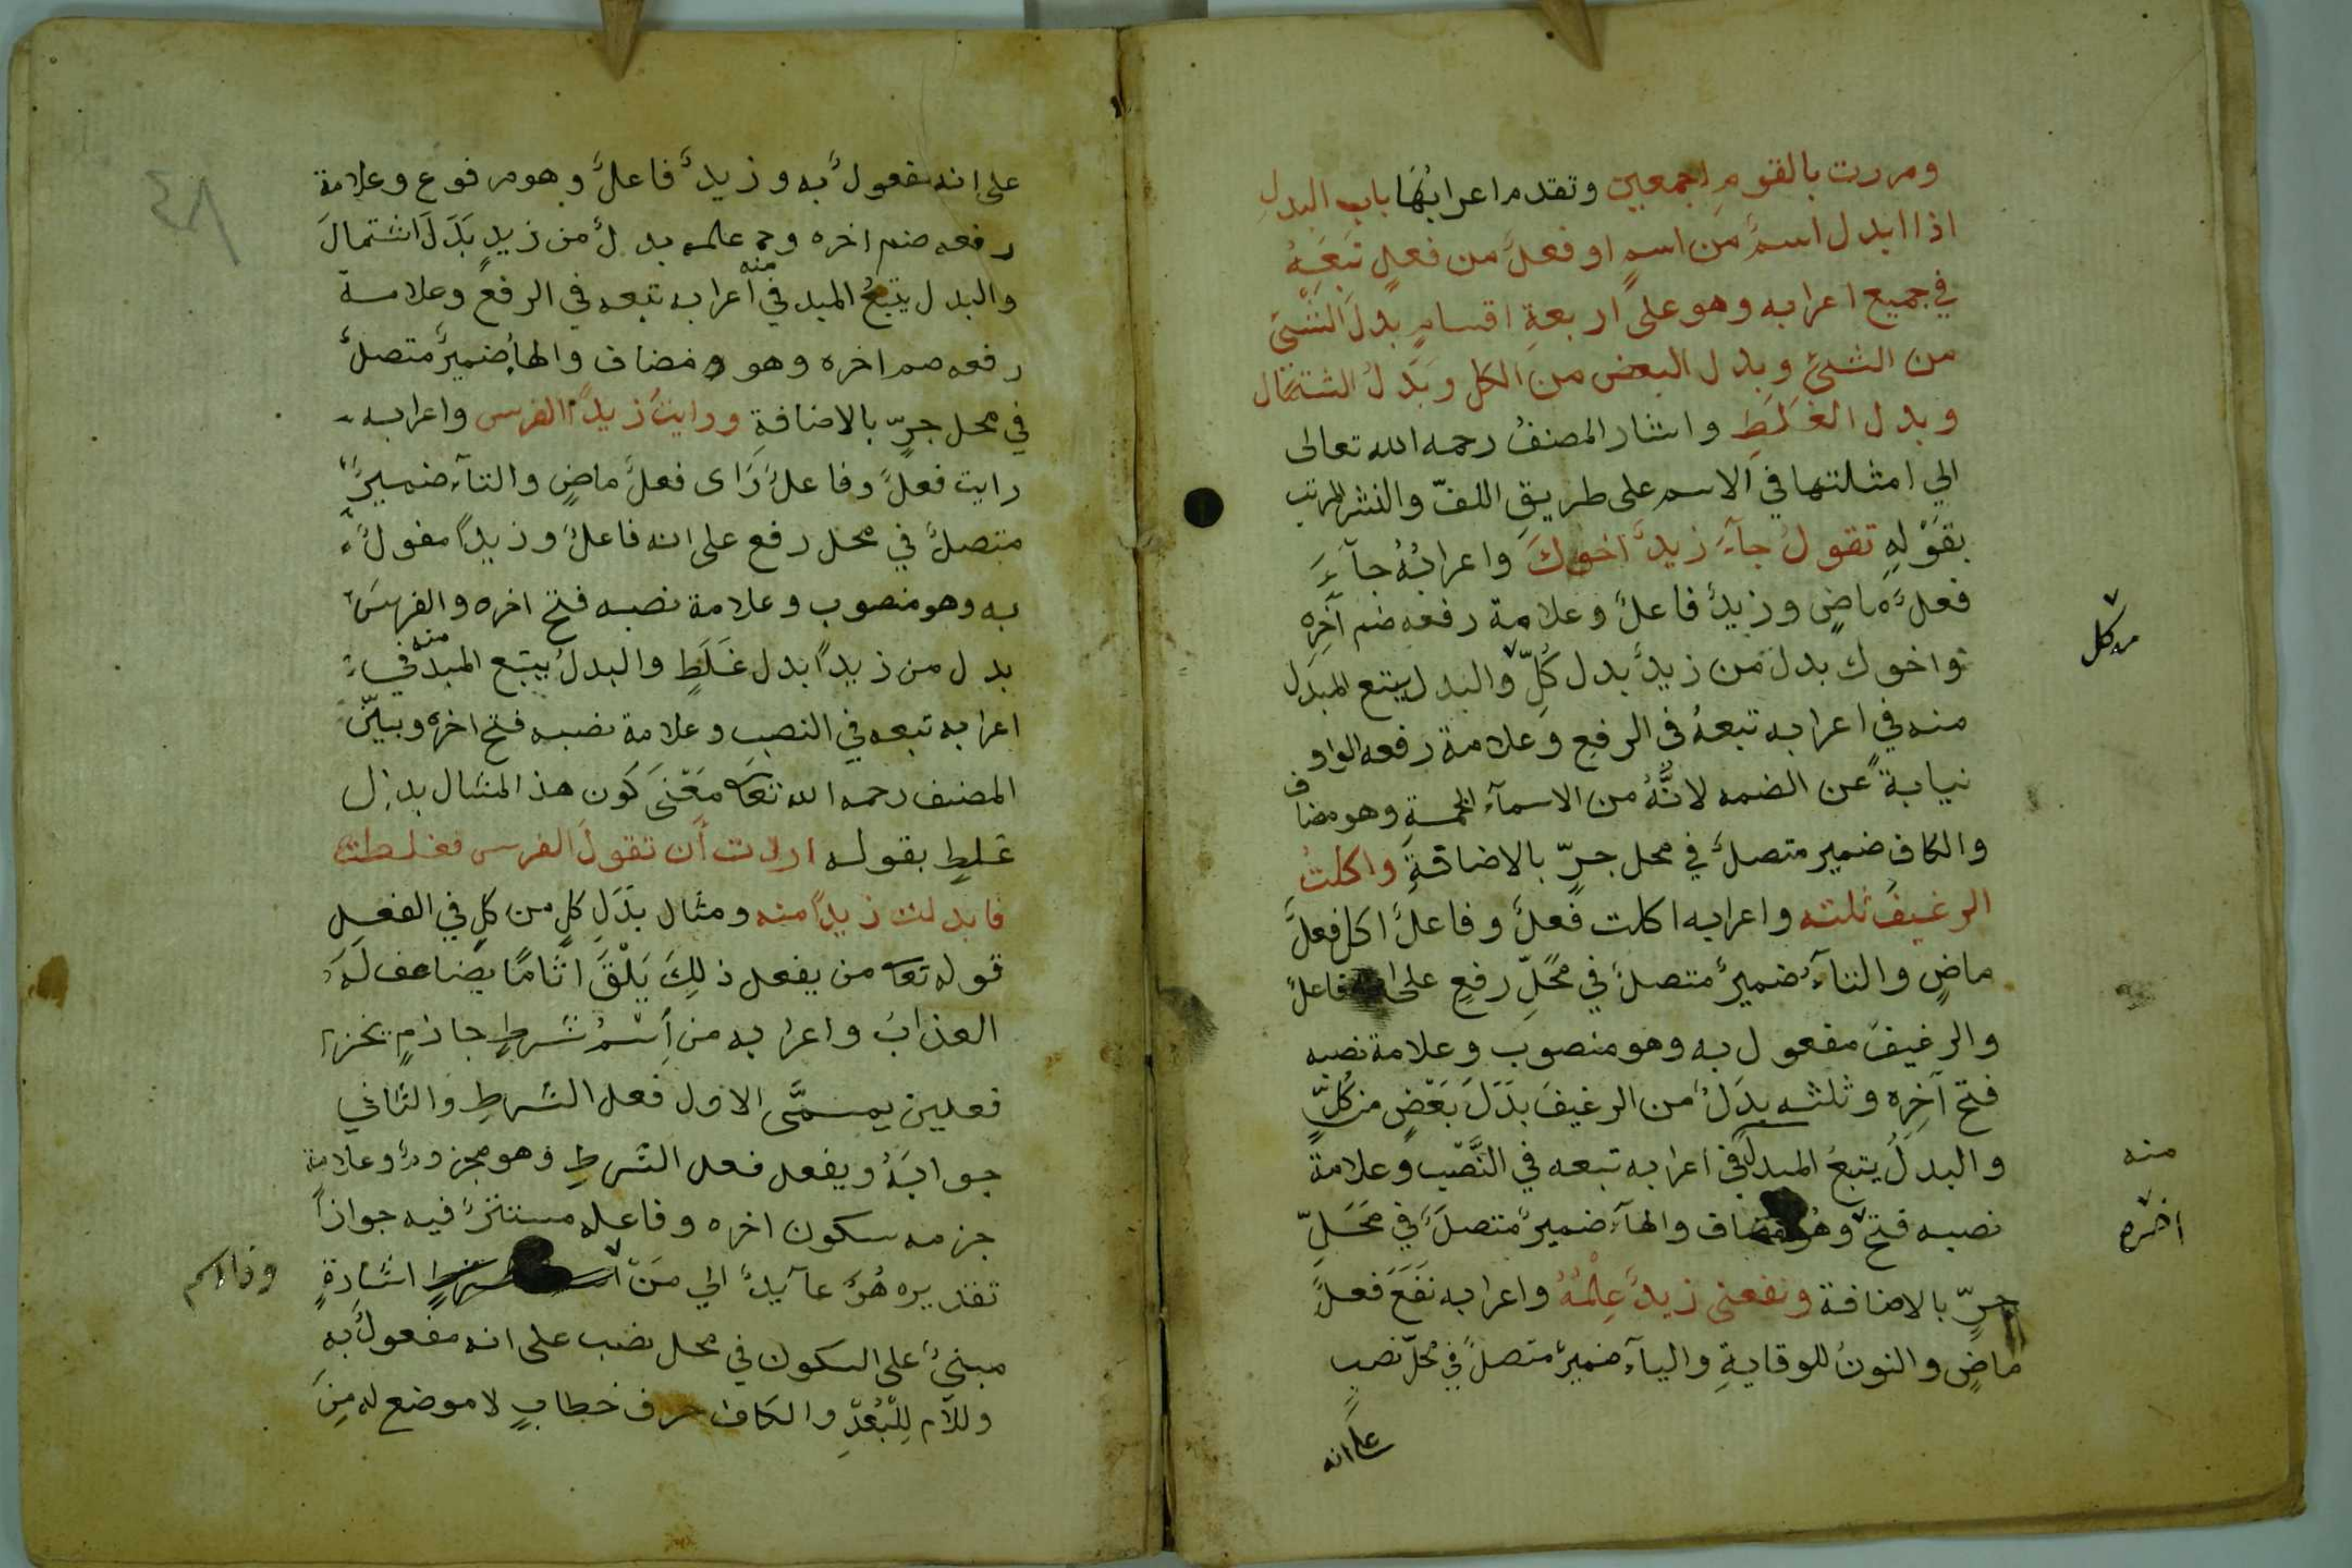 ومررت بالقومِ اجمعين وتقدم اعرابُهَا باب البدلِ
اذا ابدل اسمٌ من اسمٍ او فعلٌ من فعلٍ تَبَعَهُ
في جميع اعرابه وهو على اربعةِ اقسامٍ بدلُ الشئ
من الشئ وبدل البعض من الكل وبَدَلُ الشتمال
وبدل الغَلَطِ واشار المصنفُ رحمه الله تعالى
الي امثلتها في الاسم على طريقِ اللفّ والنشر المرتب
بقَوْلِهِ تقولُ جآءَ زيدٌ اخوكَ واعرابُهُ جآءَ
فعلٌ ماضٍ وزيدٌ فاعلٌ وعلامة رفعه ضم آخرِه
واخوك بدل من زيدٌ بدل كُلِّ والبدل يتبع المبدَل
من كل
منه في اعرابه تبعهُ في الرفعِ وعلامة رفعه الواو
نيابةً عن الضمه لانَّهُ من الاسمآء الخمسةِ وهو مضاف
والكاف ضمير متصلٌ في محل جرٍّ بالاضافةِ واكلتُ
الرغيفَ ثلثه واعرابه اكلت فعلٌ وفاعلٌ اكل فعلٌ
ماضٍ والتآءُ ضميرٌ متصلٌ في محَلِّ رفعٍ على انه فاعلٌ
والرغيفَ مفعول به وهو منصوب وعلامة نصبه
فتح آخِرِه وثلثه بدَلٌ من الرغيفَ بَدَلَ بَعْضٍ من كُلٍّ
والبدلُ يتبعُ المبدل في اعرابه تبعه في النَّصْب وعلامة
منه
نصبه فتح وهو مضاف والهآءُ ضميرٌ متصلٌ في مَحَلِّ
اخره
جرٍّ بالاضافة ونفعني زيدٌ عِلْمُهُ واعرابه نَفَعَ فعلٌ
ماضٍ والنونُ للوقايةِ واليآء ضميرٌ متصلٌ في محلّ نصبٍ
على انه
٤٨
على انه مفعولٌ به وزيدٌ فاعلٌ وهو مرفوع وعلامة
رفعه ضم اخره وح علمه بدلٌ من زيدٍ بَدَلَ اشتمالَ
والبدل يتبعُ المبد منه في اعرابه تبعه في الرفع وعلامة
رفعه ضم اخره وهو مضاف والهآُ ضميرٌ متصلٌ
في محل جرٍّ بالاضافةِ ورايتُ زيداً الفرس واعرابه
رايت فعلٌ وفاعلٌ رَاى فعلٌ ماضٍ والتآء ضميرٌ
متصلٌ في محل رفع على انه فاعلٌ وزيداً مفولٌ
به وهو منصوب وعلامة نصبه فتح اخره والفرسَ
بدل من زيداً بدل غَلَطٍ والبدلُ يتبع المبد منه في
اعرابه تبعه في النصبِ وعلامة نصبه فتح اخرِه وبيّن
المصنف رحمه الله تعا مَعْنَى كَون هذ المثال بدل
غلطٍ بقوله اردت أن تقولَ الفرس فغلطت
فابدلت زيداً منه ومثال بَدَلِ كلٍ من كلٍ في الفعل
قوله تعا من يفعل ذلِكَ يَلْقَ اثَامًا يضاعف لَهُ
العذابُ واعرابه من اِسْمُ شرطٍ جازمٍ يجزم
فعلين يسمَّى الاول فعل الشرطِ والثاني
جوابَهُ ويفعل فعل الشرطِ وهو مجزومٌ وعلامة
جزمه سكون اخره وفاعله مستترٌ فيه جوازاً
تقديره هُوَ عآيدٌ الي مَنْ اشارةٍ
وذا اسم
مبنيٌ على السكون في محل نصب على انه مفعولٌ به
وللاّم لِلْبُعْدِ والكاف حرف خطابٍ لا موضع له مِنَ